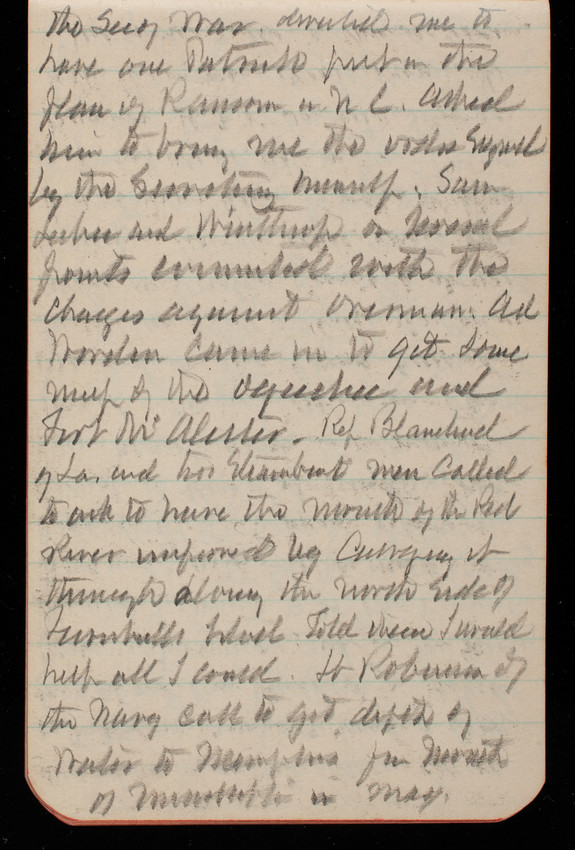 the Secy War. directed me to
have one Patrick put in the
place of Ransom in N C. Asked
him to bring me the order signed
by the Secretary himself. Sam
and Winthrop on several
points connected with the
Charges against Ad
Worden came in to get some
map of the Ogeechee and
Fort Mc Alister. Rep Blanchard
of La. and two Steamboat men called
to ask to have the mouth of the Red
River improved by Carrying it
through along the north side of
Turnbulls Island Told them I would
help all I could. Lt Roberson of
the Navy call to get depth of
Water to Memphis from Mouth
of Mississippi in May.